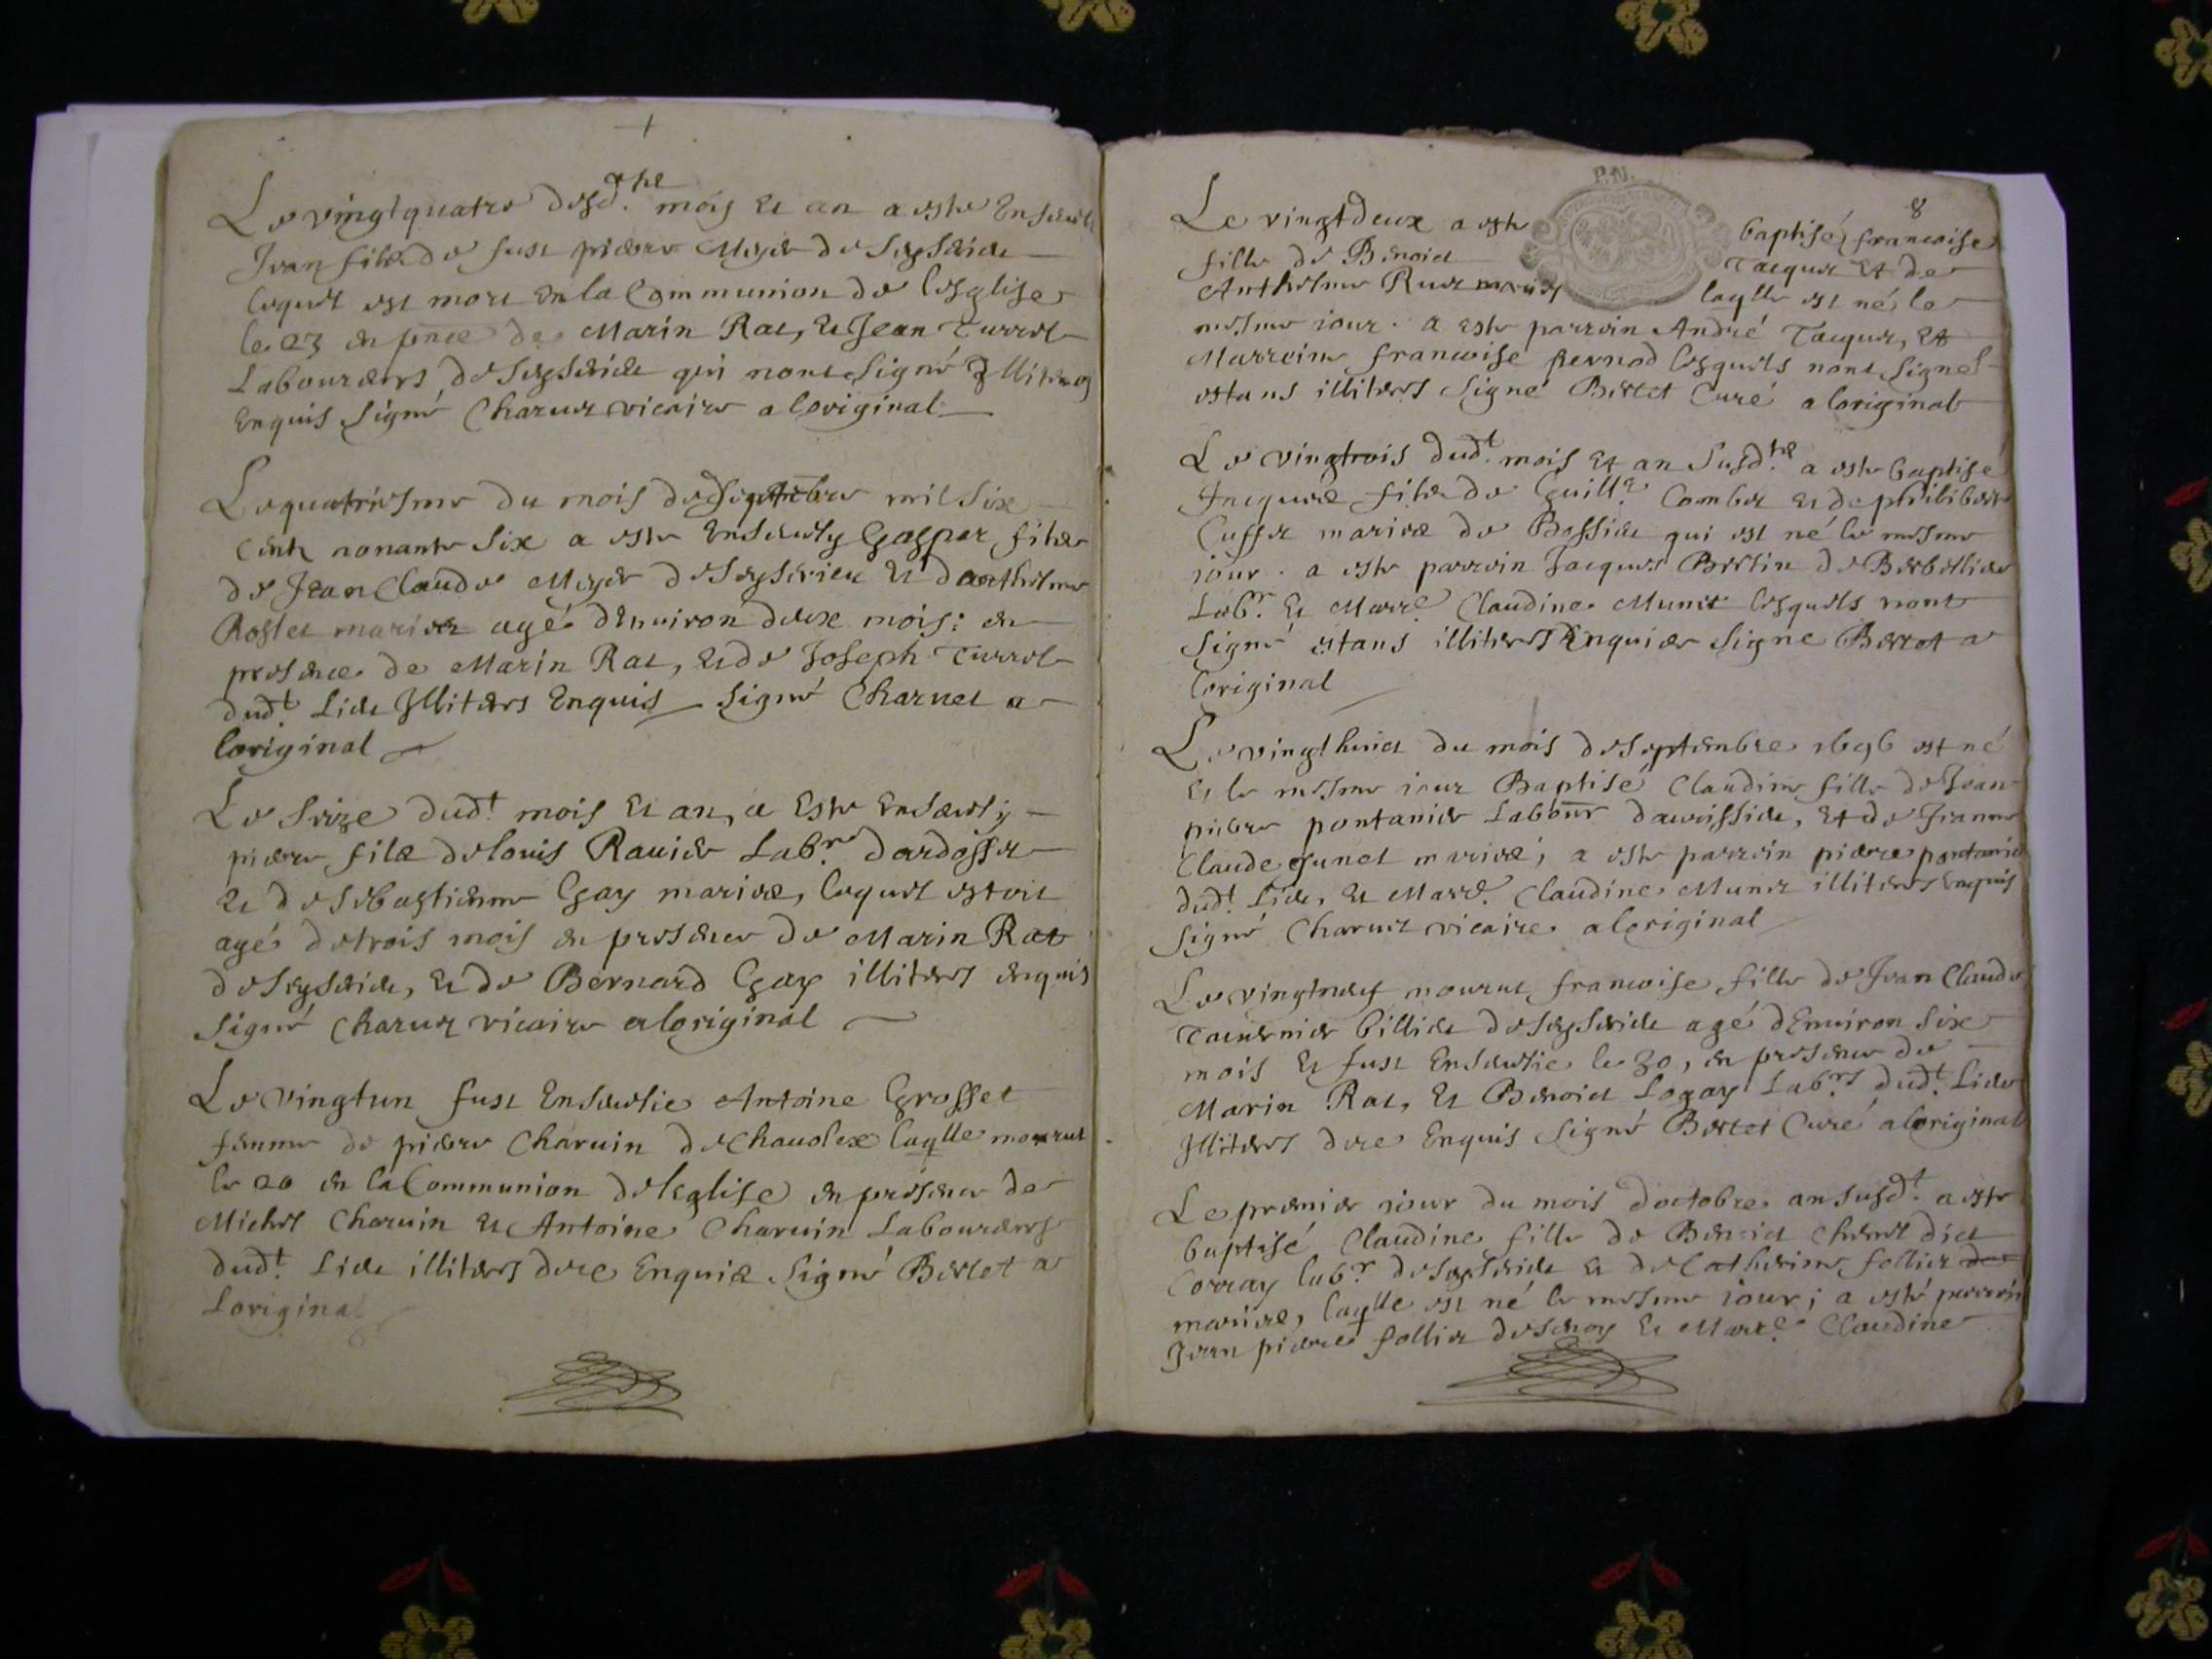 Le vingtquatre desd.
mois et an a este Ensevely
Jean filz de fust pierre Meyer de
lequel est mort en la Communion de lesglise
le 23 en pnce de Marin Rat, et Jean Turrel
Laboureurs de qui nont signé Illiteres
Enquis signé Charvet vicaire a loriginal
Le quatriesme du mois de Septebre mil six
Cent nonante six a este Ensevely Gaspar filz
de Jean Claude Meyer de et danthelme
Roslet mariez agé denviron deux mois: en
presence de Marin Rat, et de Joseph Turrel
dud.t Lieu Illiteres Enquis signé Charvet a
loriginal
Le Seize dud.t mois et an, a Este Ensevely
pierre filz de louis Ravier Lab.r dardosset
et de sebastienne Gay mariez, lequel estoit
agé de trois mois en presence de Marin Rat
de et de Bernard Gay illiteres enquis
signé Charvet vicaire a loriginal
Le vingtun fust Ensevelie Antoine Grosset
femme de pierre Charvin de Chavolex laqlle mourut
le 20 en la Communion de leglise en presence de
Michel Charvin et Antoine Charvin Laboureurs
dud.t Lieu illiteres de ce Enquis signé Bertet a
Loriginal
P.N.
8
Le vingtdeux a este baptisé francoise
fille de Benoict Tacquet et de
Anthelme Ruet mariés laqlle est né le
mesme iour. a este parrein André Tacquet, et
Marreine francoise pernod lesquels nont signés
estans illiteres signé Bertet Curé a loriginal
Le vingtrois dud.t mois et an susd. a este baptisé
Jacques filz de Guill.e Combet et de philiberte
Cusset mariez de Bossieu qui est né le mesme
iour. a este parrein Jacques Bertin de
Lab.r et Marr.e Claudine Munet lesquels nont
signé estans illiteres Enquis signe Bertet a
loriginal
Le vingthuict du mois de Septembre 1696 est né
et le mesme iour Baptisé Claudine fille de Jean
pierre pontanier Labour et de Jeanne
Claude Junet mariez, a este parrein pierre pontanier
dud.t Lieu, et Marr.e Claudine Munet illiteres enquis
signé Charvet vicaire a loriginal
Le vingtneuf mourut francoise fille de Jean Claude
Tavernier billiet de agé denviron six
mois et fust Ensevelie le 30, en presence de
Marin Rat, et Benoict Logay Lab.rs dud.t Lieu
Illiteres de ce Enquis signé Bertet Curé a loriginal
Le premier iour du mois doctobre an susd.t a este
baptisé Claudine fille de Benoict dict
Corray lab.r de et de Catherine follier
mariez, laqlle est né le mesme iour; a esté parrein
Jean pierre follier et Marr.e Claudine